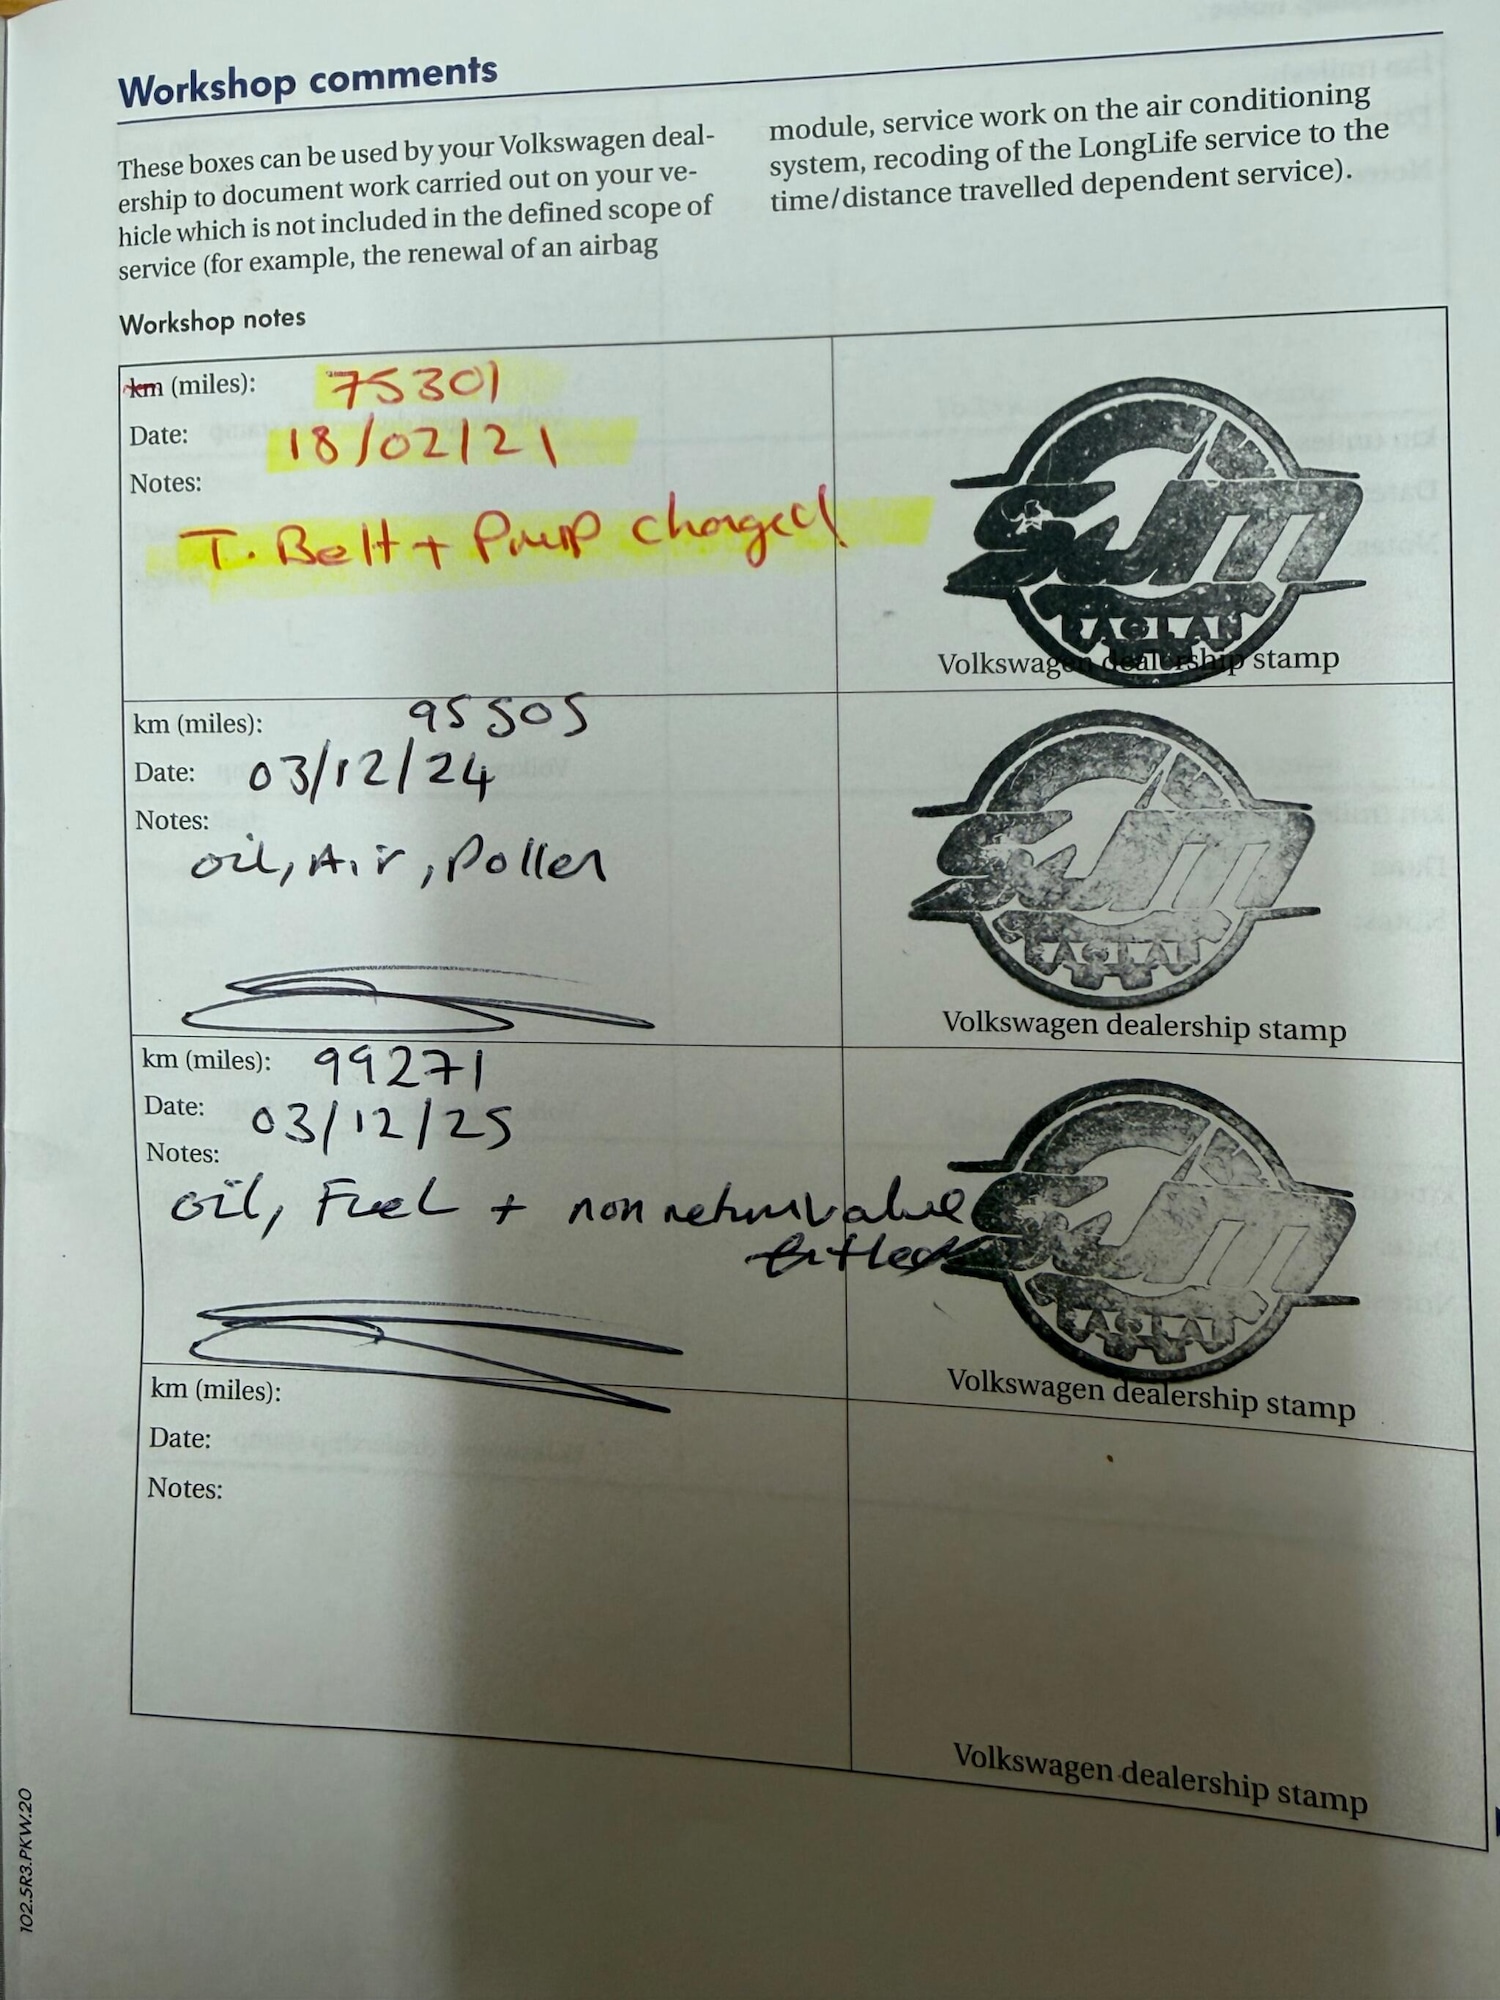 Workshop comments
These boxes can be used by your Volkswagen deal-
ership to document work carried out on your ve-
hicle which is not included in the defined scope of
service (for example, the renewal of an airbag
module, service work on the air conditioning
system, recoding of the LongLife service to the
time/distance travelled dependent service).
Workshop notes
km (miles): 75301
Date: 18/02/21
Notes:
T. Belt + Pump changed
SJM
RAGLAN
Volkswagen dealership stamp
km (miles): 95505
Date: 03/12/24
Notes:
oil, Air, Pollen
SJM
RAGLAN
Volkswagen dealership stamp
km (miles): 99271
Date: 03/12/25
Notes:
oil, Fuel + non return valve
fitted
SJM
RAGLAN
Volkswagen dealership stamp
km (miles):
Date:
Notes:
Volkswagen dealership stamp
102.5R3.PKW.20